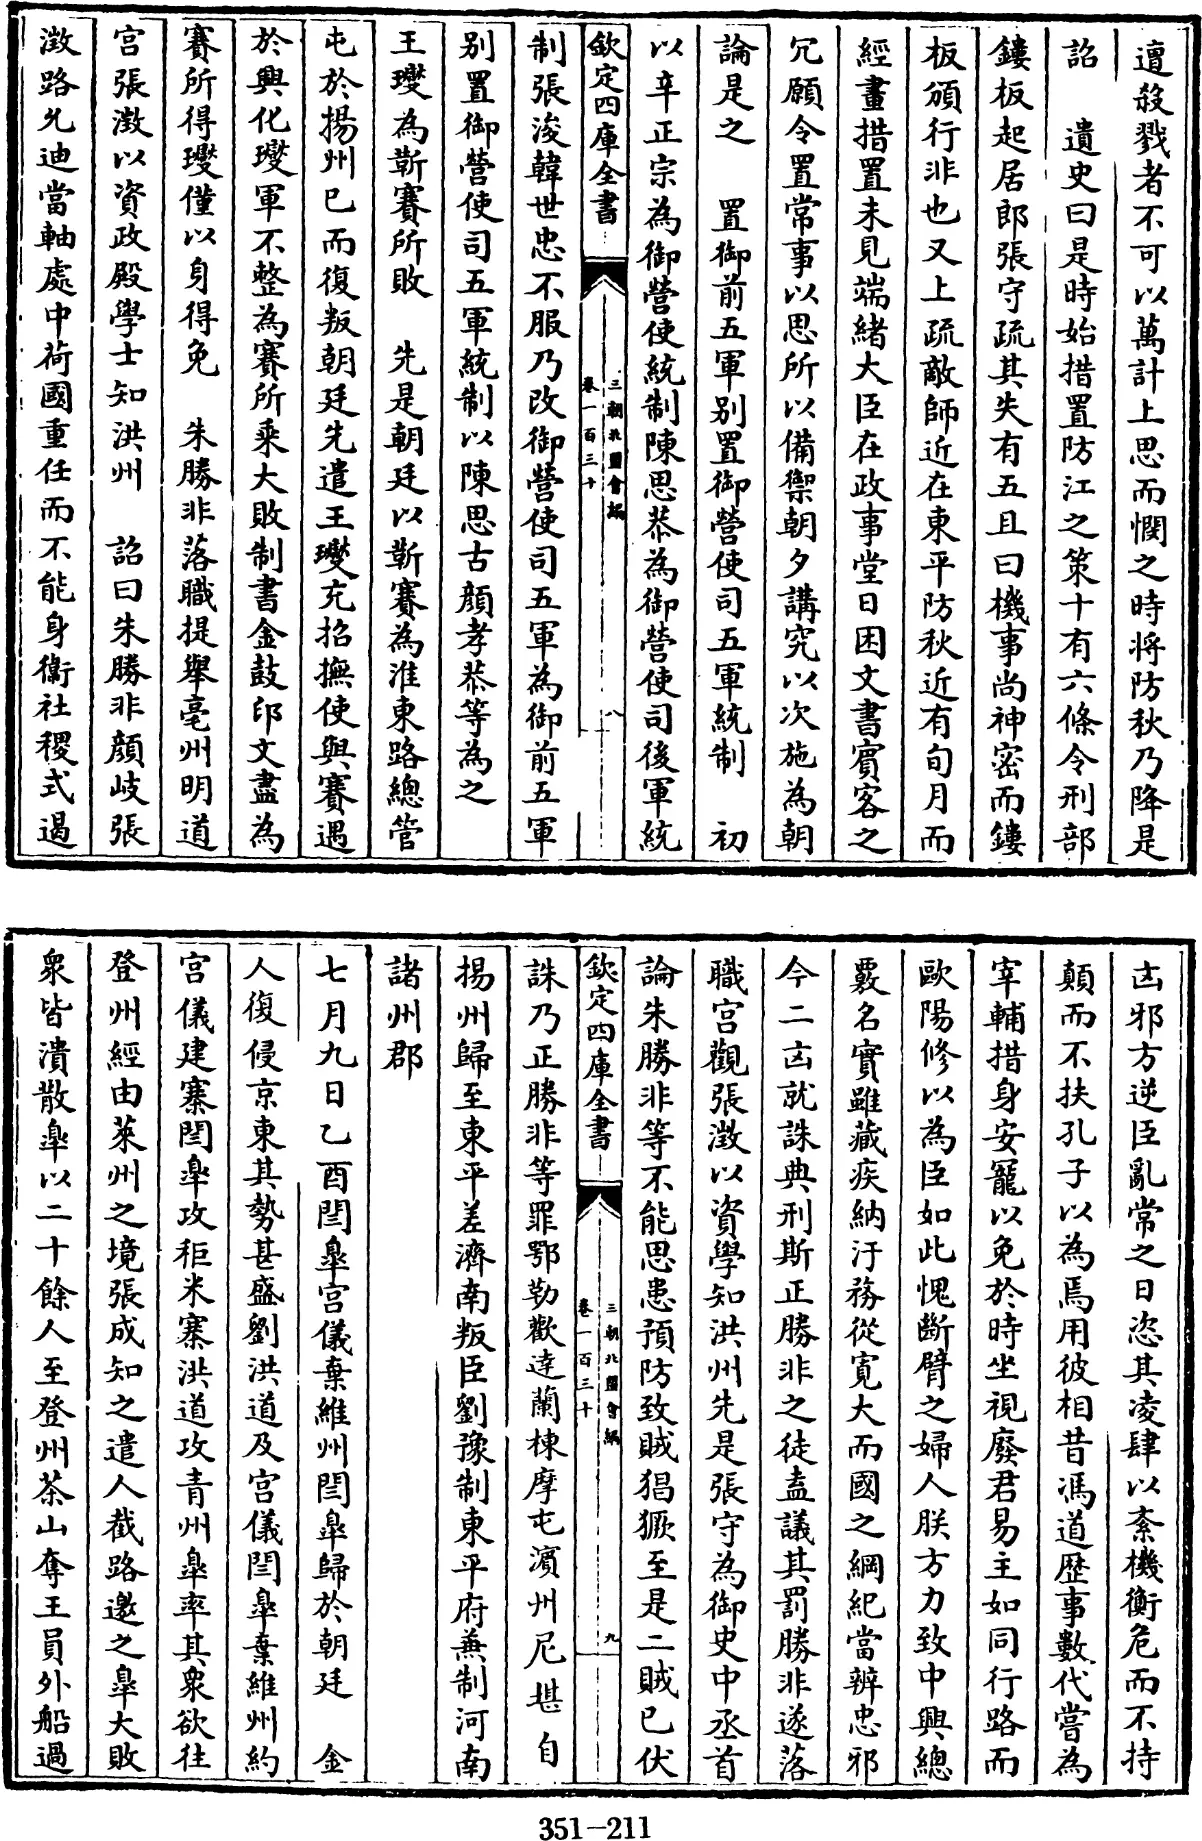 邅殺戮者不可以萬計上思而憫之時將防秋乃降是
詔　遺史曰是時始措置防江之策十有六條令刑部
鏤板起居郎張守疏其失有五且曰機事尚神密而鏤
板頒行非也又上疏敵師近在東平防秋近有旬月而
經畫措置未見端緒大臣在政事堂日困文書賓客之
冗願令置常事以思所以備禦朝夕講究以次施為朝
論是之　置御前五軍别置御營使司五軍統制　初
以辛正宗為御營使統制陳思恭為御營使司後軍統
欽定四庫全書
三朝北盟會編
卷一百三十
八
制張浚韓世忠不服乃改御營使司五軍為御前五軍
别置御營使司五軍統制以陳思古顔孝恭等為之
王𤫉為靳賽所敗　先是朝廷以靳賽為淮東路總管
屯於揚州已而復叛朝廷先遣王𤫉充招撫使與賽遇
於興化𤫉軍不整為賽所乘大敗制書金鼓印文盡為
賽所得𤫉僅以身得免　朱勝非落職提舉亳州明道
宫張澂以資政殿學士知洪州　詔曰朱勝非顔岐張
澂路允迪當軸處中荷國重任而不能身衛社稷式遏
凶邪方逆臣亂常之日恣其凌肆以紊機衡危而不持
顛而不扶孔子以為焉用彼相昔馮道歴事數代嘗為
宰輔措身安寵以免於時坐視廢君易主如同行路而
歐陽修以為臣如此愧斷臂之婦人朕方力致中興總
覈名實雖藏疾納汙務從寛大而國之綱紀當辨忠邪
今二凶就誅典刑斯正勝非之徒盍議其罰勝非遂落
職宫觀張澂以資學知洪州先是張守為御史中丞首
論朱勝非等不能思患預防致賊猖獗至是二賊已伏
欽定四庫全書
三朝北盟會編
卷一百三十
九
誅乃正勝非等罪鄂勒歡達蘭棟摩屯濱州尼堪自
揚州歸至東平差濟南叛臣劉豫制東平府兼制河南
諸州郡
七月九日乙酉閆臯宫儀棄維州閆臯歸於朝廷　金
人復侵京東其勢甚盛劉洪道及宫儀閆臯棄維州約
宫儀建寨閆臯攻秬米寨洪道攻青州臯率其衆欲往
登州經由萊州之境張成知之遣人截路邀之臯大敗
衆皆潰散臯以二十餘人至登州茶山奪王員外船過
351-211